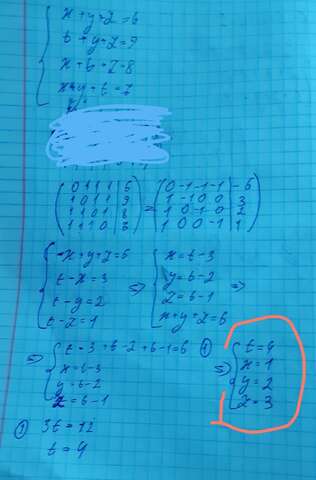 x + y + z = 6
t + y + z = 9
x + t + z = 8
x + y + t = 7
( 0 1 1 1 | 6
1 0 1 1 | 9
1 1 0 1 | 8
1 1 1 0 | ) = ( 0 -1 -1 -1 | -6
1 -1 0 0 | 3
1 0 -1 0 | 2
1 0 0 -1 | 1 )
x + y + z = 6
t - x = 3
t - y = 2
t - z = 1
⇒ x = t - 3
y = t - 2
z = t - 1
x + y + z = 6 ⇒
⇒ t - 3 + t - 2 + t - 1 = 6 ①
x = t - 3
y = t - 2
z = t - 1
⇒ t = 4
x = 1
y = 2
z = 3
① 3t = 12
t = 4